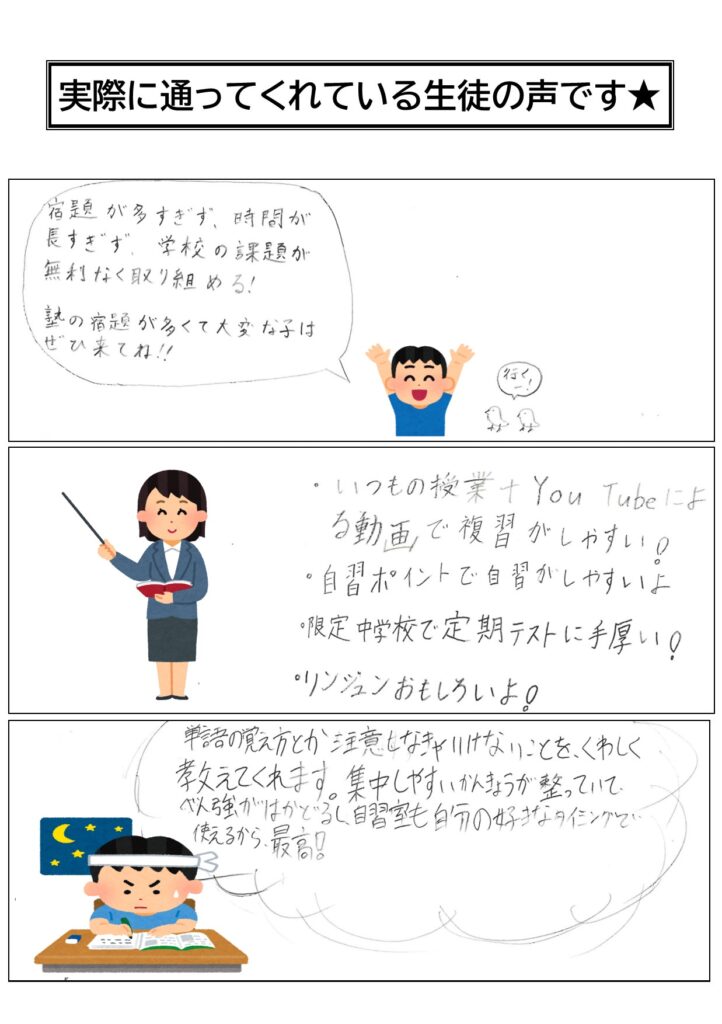 実際に通ってくれている生徒の声です★
宿題が多すぎず、時間が
長すぎず、学校の課題が
無利なく取り組める!
塾の宿題が多くて大変な子は
ぜひ来てね!!
行く
ー!
・いつもの授業+You Tubeによ
る動画で複習がしやすい!
・自習ポイントで自習がしやすいよ
・限定中学校で定期テストに手厚い!
・リンジュンおもしろいよ!
単語の覚え方とか注意しなきゃいけないことを、くわしく
教えてくれます。集中しやすいかんきょうが整っていて、
べん強がはかどるし、自習室も自分の好きなタイミングで
使えるから、最高!